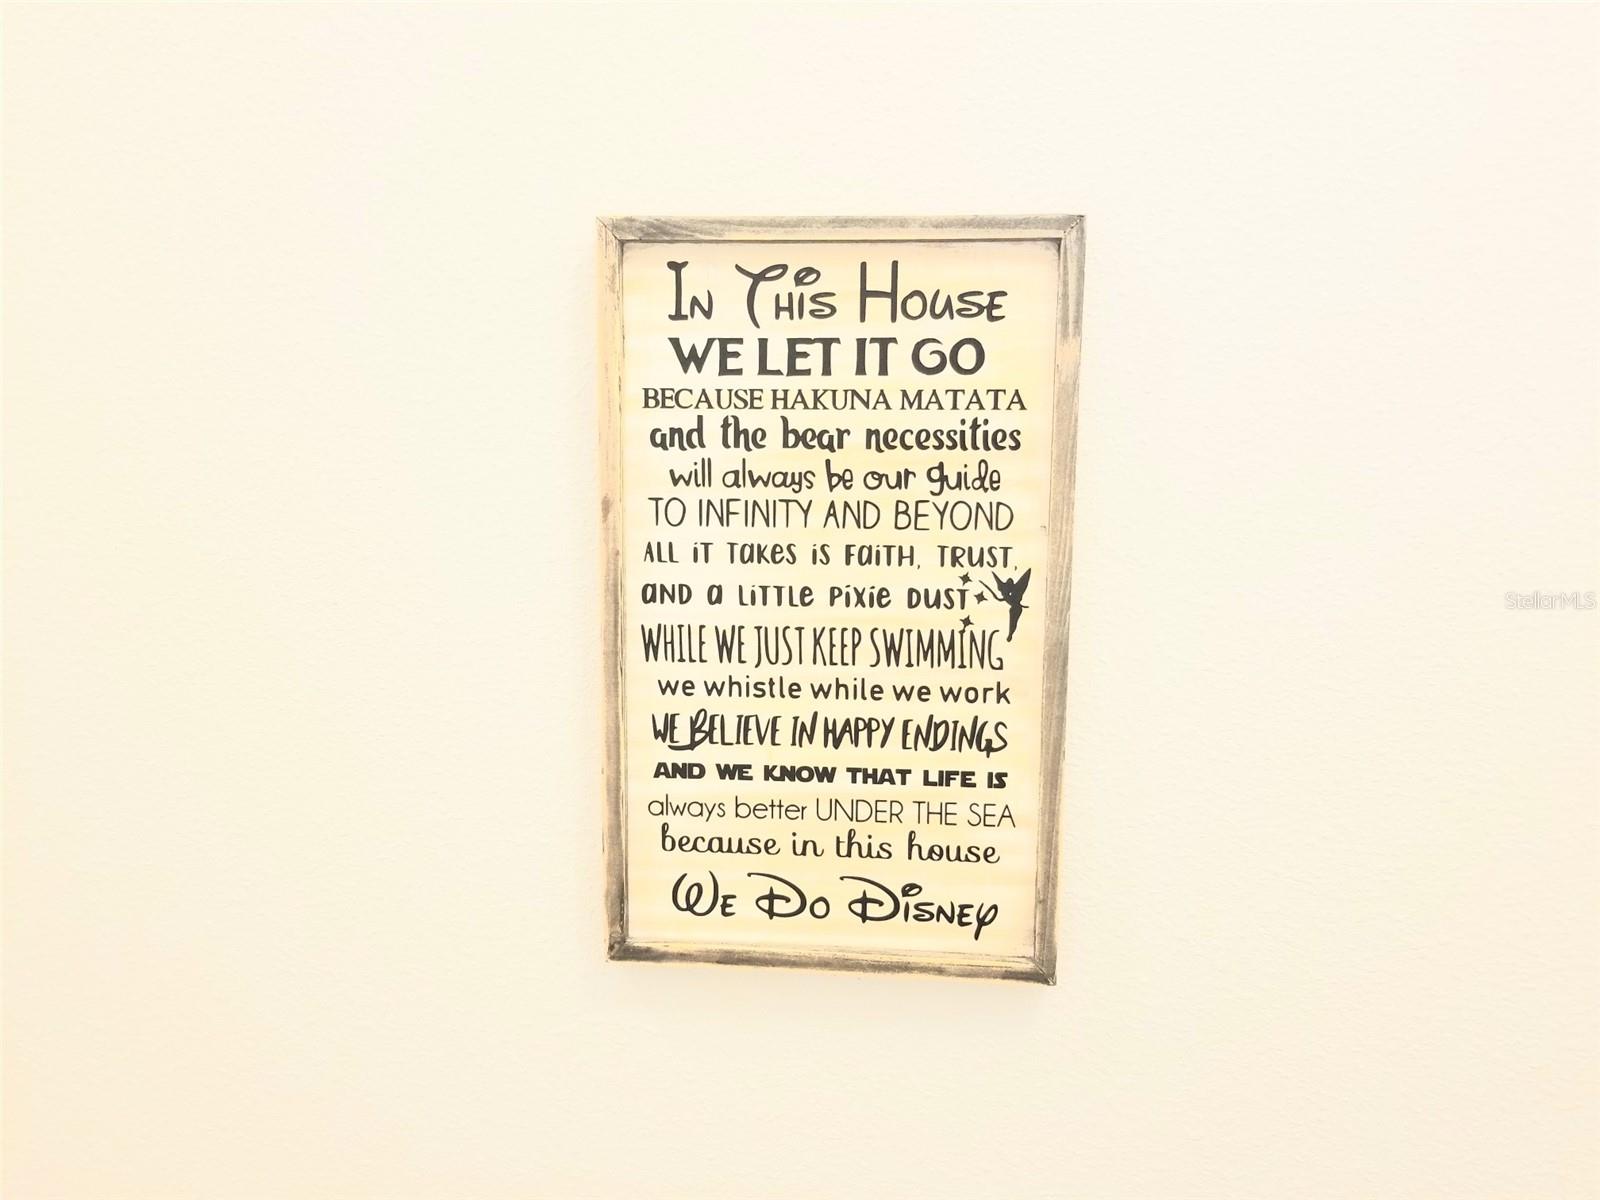 In This House
WE LET IT GO
BECAUSE HAKUNA MATATA
and the bear necessities
will always be our guide
TO INFINITY AND BEYOND
ALL iT TaKes iS FaiTH, TRUST,
AND a LiTTLe PiXie DUST
WHILE WE JUST KEEP SWIMMING
we whistle while we work
WE BELIEVE IN HAPPY ENDINGS
AND WE KNOW THAT LIFE IS
always better UNDER THE SEA
because in this house
We Do Disney
StellarMLS